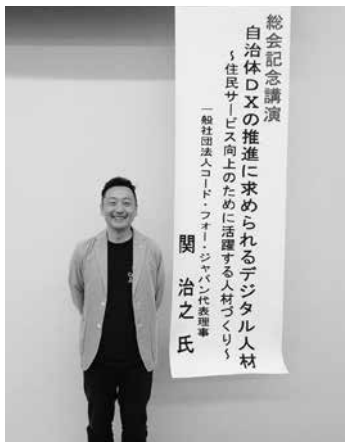 総会記念講演
自治体DXの推進に求められるデジタル人材
～住民サービス向上のために活躍する人材づくり～
一般社団法人コード・フォー・ジャパン代表理事
関 治之 氏